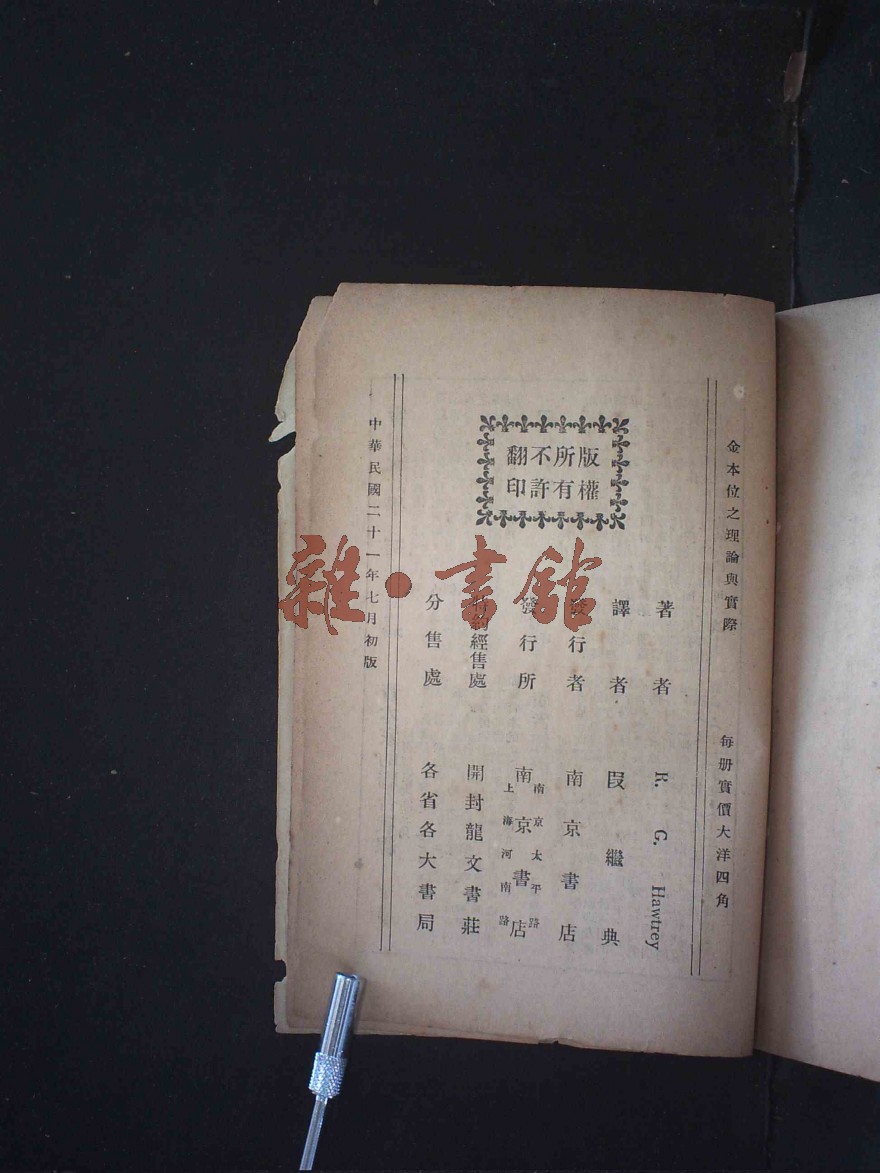 金本位之理論與實際 每册實價大洋四角
版權所有不許翻印
著者 R. G. Hawtrey
譯者 段繼典
發行者 南京書店
發行所 南京太平路 上海河南路 南京書店
特約經售處 開封龍文書莊
分售處 各省各大書局
中華民國二十一年七月初版
雜·書館